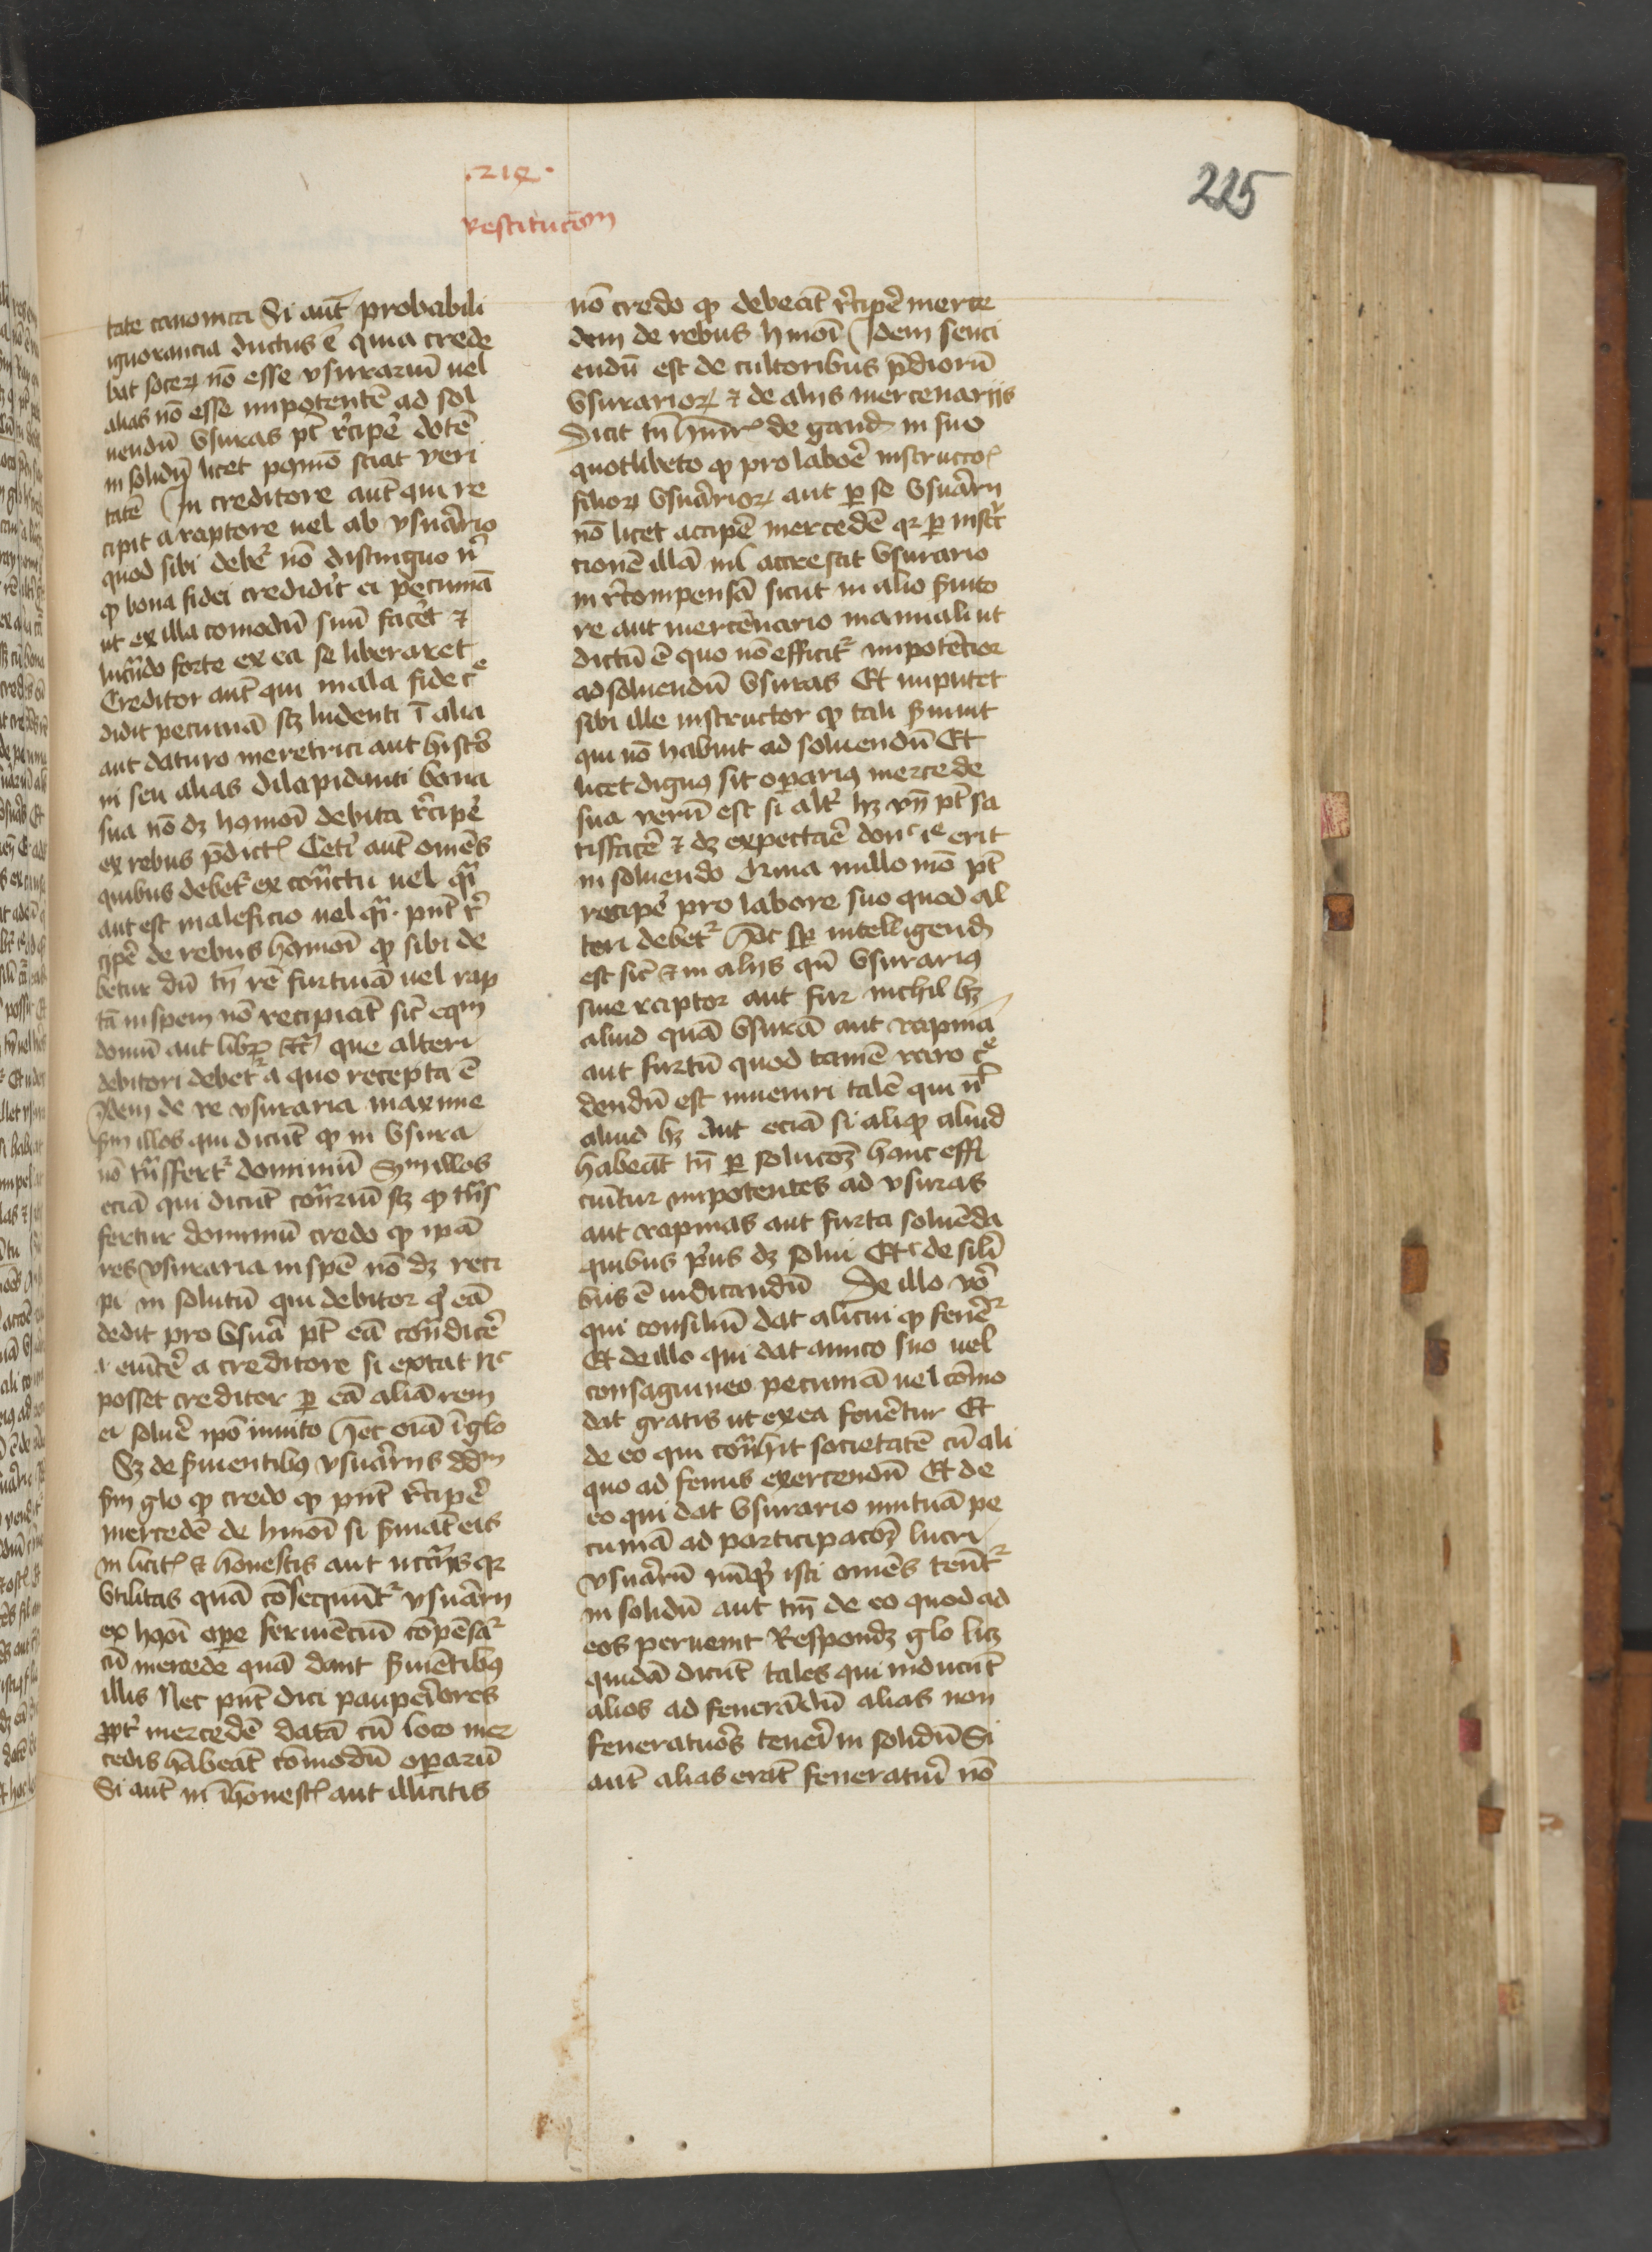 .214.
restitucōm
225
tate canonica Si aut̄ probabili
ignorancia ductus ē quia crede
bat socerꝝ nō esse vsurariū uel
alias nō esse inpotentē ad sol
uendū vsuras pt̄ r̄cipe᷑ dotē
in solidū licet postmō sciat veri
tatē In creditore aut̄ qui re
cipit a raptore uel ab vsurario
quod sibi debet᷑ nō distinguo
ꝙ bona fidei credidit ei pecuniā
ut ex illa comodū suū facet ⁊
lucᵃndo forte ex ea se liberaret
Creditor aut̄ qui mala fide cᵉ
didit pecuniā scꝫ ludenti ī alia
aut daturo meretrici aut histo
ni seu alias dilapidanti bona
sua nō dꝫ hᵒmoī debita r̄cipe᷑
ex rebus p̄dict᷑ Cet᷑i aut̄ omēs
quibus debet᷑ ex contᵃctu uel qᵃi
aut est maleficio uel qᵃi pn̄t r̄
cipe᷑ de rebus hmoī ꝙ sibi de
betur dū tn̄ rē furtiuā uel rap
tā in spem nō recipiāt sic᷑ equm
domū aut librꝫ que alteri
debitori debet᷑ a quo recepta ē
Idem de re vsuraria maxime
scdm illos qui dicūt ꝙ in vsura
nō tᵃnsfert᷑ dominiū Scdm illos
eciā qui dicūt contᵃriū scꝫ ꝙ tᵃns
fertur dominiū credo ꝙ ipā
res vsuraria in spē nō dꝫ reci
pi in solutū qui debitor qͥ eā
dedit pro vsura pt̄ eā condice᷑
⁊ euīce᷑ a creditore si extat nᶜ
posset creditor ꝑ eā aliā rem
ei solue᷑ ipō inuito Hec oīa ī glo
Sꝫ de ẜuientibꝰ vsurariis dᵈᵐ
scdm glo ꝙ credo ꝙ pn̄t r̄cipe᷑
mercedē de hmoī si ẜuiāt eis
in licit᷑ ⁊ honestis aut necᵃriis qꝛ
vtilitas quā cōsequūt᷑ vsurarij
ex hmoī oꝑe seruiēciū cōpēsat᷑
cū mercede quā dant ẜuiētibꝰ
illis Nec pn̄t dici pauperiores
ꝓpt᷑ mercedē datā cū loco mer
cedis habeāt cōmodū oꝑarū
Si aut̄ in īhonest᷑ aut illicitis
nō credo ꝙ debeāt r̄cipe᷑ merce
dem de rebus hmoī Idem senci
endū est de cultoribus p̄diorū
vsurarioꝝ ⁊ de aliis mercenariis
Dicit tn̄ henr᷑ de gand in suo
quotlibeto ꝙ pro labor̄e instructōs
filioꝝ vsurarioꝝ aut ꝑ se vsurarii
nō licet accipe᷑ mercedē qꝛ ꝑ instᵃ
ctionē illā nil accrescit vsurario
in r̄compensā sicut in alio ẜuito
re aut mercenario manuali ut
dictū ē quo nō efficit᷑ inpotēcior
ad soluendū vsuras Et inputet
sibi ille instructor ꝙ tali ẜuiuit
qui nō habuit ad soluendū Et
licet dignꝰ sit oꝑariꝰ mercede
sua verū est si alt᷑ hꝫ vn̄ pt̄ sa
tisface᷑ ⁊ dꝫ expectare donᶜ ille erit
in soluendo Quia nullo mō pt̄
recipe᷑ pro labore suo quod al
teri debet᷑ Hoc sꝑ intelligend
est sic᷑ ⁊ in aliis qn̄ vsurariꝰ
siue raptor aut fur nichil hꝫ
aliud quā vsurā aut rapina
aut furtū quod tamē raro cᵉ
dendū est inueniri talē qui n̄
aliud hꝫ Aut eciā si aliqͦ aliud
habeāt tn̄ ꝑ solucōꝫ hanc effi
ciūtur inpotentes ad vsuras
aut rapinas aut furta soluēda
quibus pͥus dꝫ solui Etᶜ de sili
bus ē iudicandū De illo vᵒ
qui consiliū dat alicui ꝙ fener᷑
Et de illo qui dat amico suo uel
consaguineo pecuniā uel cōmo
dat gratis ut ex ea fenēetur Et
de eo qui contᵃhit societatē cū ali
quo ad fenus exercendū Et de
eo qui dat vsurario mutuā pe
cuniā ad participacōꝫ lucri
vsurarū nūqͥd isti omēs tenēt᷑
in solidū aut tm̄ de eo quod ad
eos peruenit Respondꝫ glo licꝫ
quidā dicūt tales qui inducūt
alios ad fenerādū alias non
feneratuos teneri in solidū Si
aut̄ alias erāt feneraturi nō